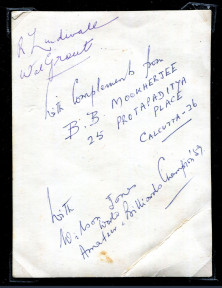 R Lindwall
Wal Grout
With Complements from
B.B MOOKHERJEE
25 PROTAPADITYA
PLACE
CALCUTTA-26
With
Wilson Jones
Amateur Billiards Champion